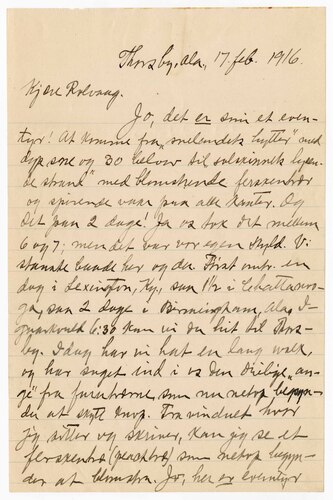 Thorsby, Ala, 17 feb. 1916.
Kjære Rolvaag.
Jo, det er som et even-
tyr! At komme fra "snelandets hytter" med
dyp sne og 30 below til solskinnets
strand" med blomstrende ferskentrær
og spirende vaar paa alle kanter. Og
det paa 2 dage! Ja vi tok det mellem
6 og 7; men det var vor egen skyld. Vi
stanste baade her og der. Først omtr. en
dag i Lexington, Ky., saa 1½ i Chattanoo-
ga, saa 2 dage i Birmingham, Ala. I
gaarkveld 6:30 kom vi du hit til Thors-
by. Idag har vi hat en lang walk,
og har suget ind i os den deilige "an-
ge" fra furutrærne som nu netop begyn-
der at skyte knop. Fra vinduet hvor
jeg sitter og skriver, kan jeg se et
ferskentræ (peachtree) som netop begyn-
der at blomstre. Jo, her er eventyr